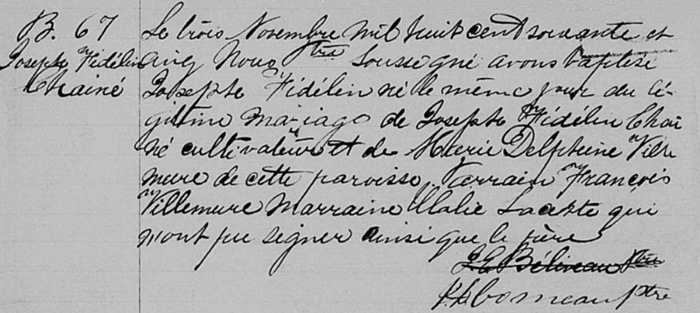 B. 67
Joseph Fidélin
Chainé
Le trois Novembre mil huit cent soixante et
cinq Nous Ptre Soussigné avons baptisé
Joseph Fidélin né le même jour du lé-
gitime mariage de Joseph Fidélin Chai
né cultivateur et de Marie Delphine Ville
mure de cette paroisse, Parrain François
Villemure Marraine Ulalie Lacerte qui
n'ont pu signer ainsi que le père
Béliveau Ptre
Comeau ptre